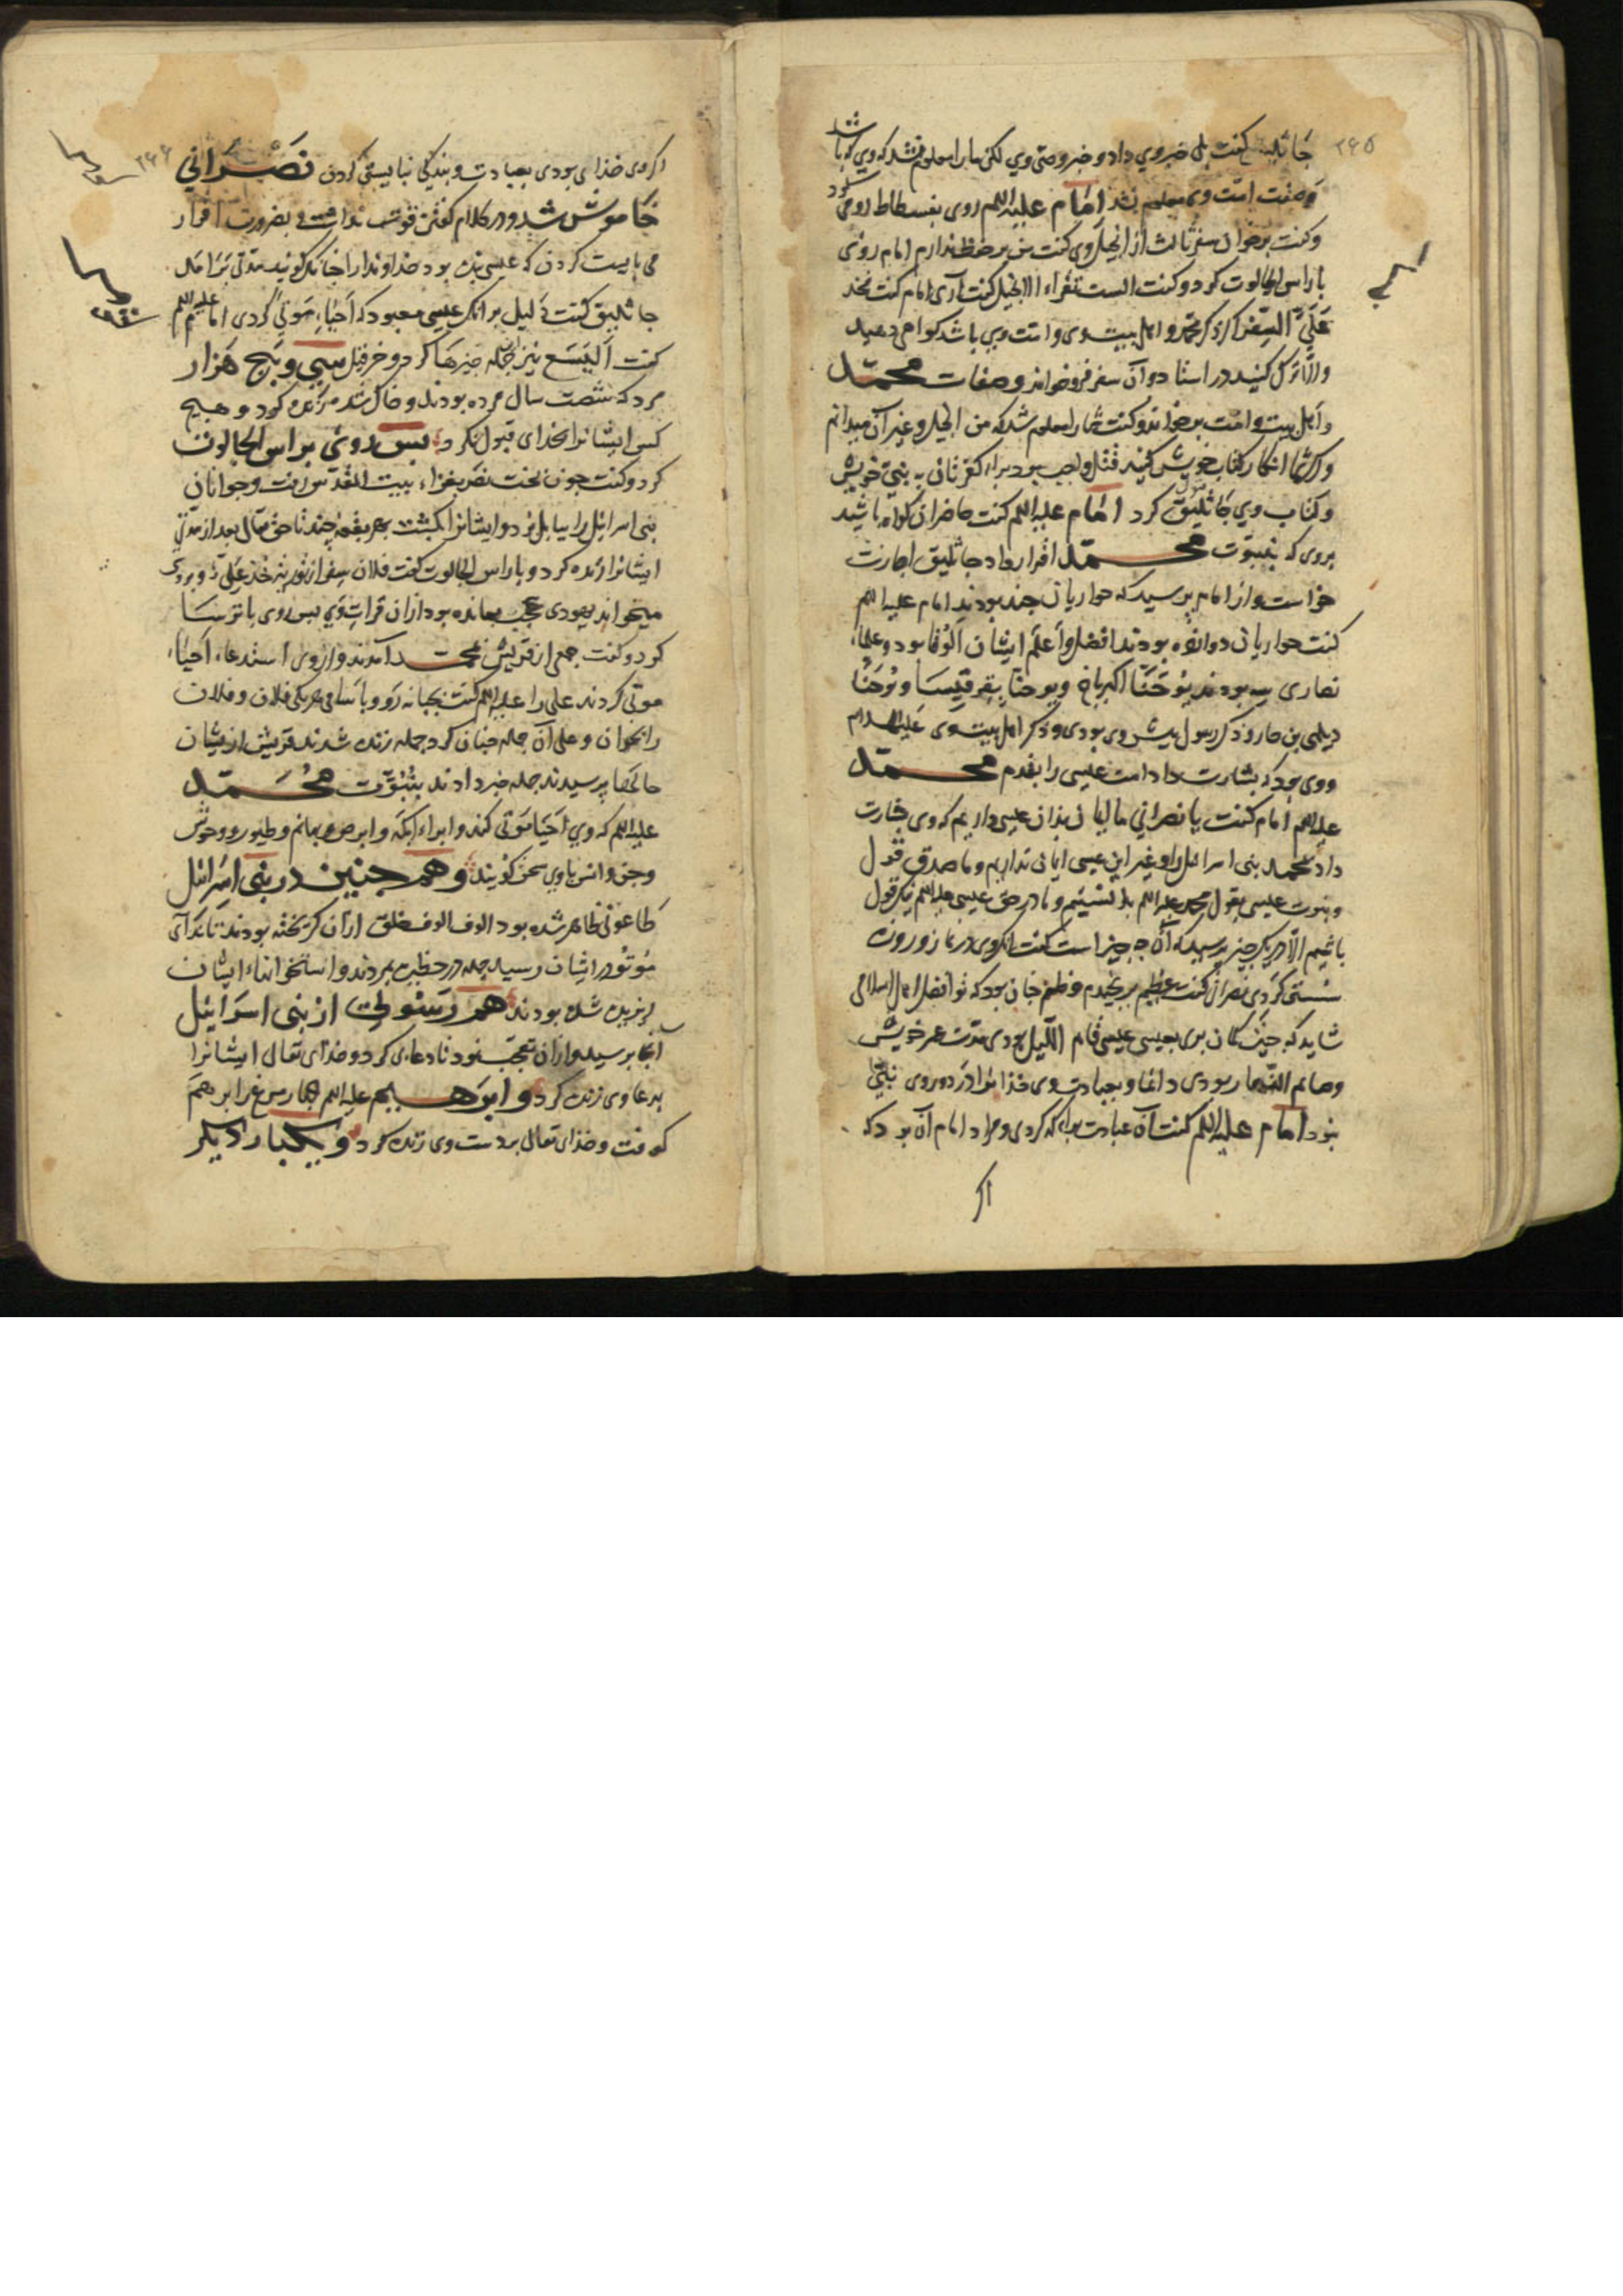 ۲۶۵
جاثلیق گفت بلی خبر وی داد و خبر وصی وی لکن ما را معلوم نشد که وی که باشد
وصفت امت وی معلوم نشد امام علیه السلم روی بنسطاط رومی کرد
وگفت برخوان سفر ثالث از انجیل وی گفت من بر حفظ ندارم امام روی
باراس الجالوت کرد و گفت الست تقراء الانجیل گفت آری امام گفت فخذ
علیّ السِّفر اکر ذکر محمد و اهل بیت وی و امت وی باشد کواهی دهید
والّا ترک کنید در اسنا دو آن سفر فرو خواند و صفات محمّد
واهل بیت و امت برخواند و گفت شما را معلوم شد که من انجیل و غیر آن میدانم
و اکر شما انکار کتاب خویش کنید قتل واجب بود برای کفرتان به نبی خویش
و کتاب وی جاثلیق قبول کرد امام علیه السلم گفت حاضران کواه باشید
بروی که بنبوّت محمّد اقرار داد جاثلیق اجازت
خواست و از امام پرسید که حواریان چند بودند امام علیه السلم
گفت حواریان دوانزه بودند افضل و اعلم ایشان الوقا بود و علماء
نصاری سه بودند یُوحَنّا اکبر باخ و یوحنّا بقرقیسا و یُوحَنّا
دیلمی بن حار و ذکر رسول پیش وی بودی و ذکر اهل بیت وی علیه السلام
و وی بود که بشارت داد امت عیسی را بقدم محمّد
علیه السلم امام گفت یا نصرانی ما ایمان بدان عیسی داریم که وی بشارت
داد بمحمد بنی اسرائیل را و غیر این عیسی ایمان نداریم و ما صدق قول
و نبوت عیسی بقول محمد علیه السلم بدانستیم و ما در حق عیسی علیه السلم نیکو قول
باشیم الّا در یک چیز پرسید که آن چه چیز است گفت انکه وی در نماز و روزه
سستی کردی نصرانی گفت عظیم برنجیدم و ظنم چنان بود که تو افضل اهل اسلامی
شاید که چنین کمان بری بعیسی عیسی قام اللّیل بودی مدّت عمر خویش
وصایم النّهار بودی دائما و بعبادت وی خدایرا در دور وی نبی
نبود امام علیه السلم گفت آن عبادت برای که کردی و مراد امام آن بود که
اکر
۲۶۶
اکر وی خدای بودی بعبادت و بندگی نبایستی کردن نصرانی
خاموش شد و در کلام گفتن قوتش نداشت و بضرورت اقرار
می بایست کردن که عیسی بنده بود خداوند را چنانکه گویند مدّتی برآمد
جاثلیق گفت دلیل برانک عیسی معبود که احیاء موتی کردی امام علیه السلم
گفت الیَسَع نیز جمله چیزها کرد و حزقیل سی و پنج هزار
مرد که شصت سال مرده بودند و خاک شده زنده کرد و هیچ
کس ایشانرا بخدای قبول نکرد پس روی براس الجالوت
کرد و گفت چون بخت نصر بغزاء بیت المقدّس رفت و جوانان
بنی اسرائیل را ببابل برد و ایشانرا بکشت بهر بقعه چند تا حق تعالی بعد از مدّتی
ایشانرا زنده کرد و باراس الجالوت گفت فلان سفر از توریة خذ علیّ و بر وی
میخواند یهودی عجب بمانده بود از ان قرات وی پس روی با ترسا
کرد و گفت جمعی از قریش بمحمّد آمدند و از وی استدعاء احیاء
موتی کردند علی را علیه السلم گفت بجبانه رو و با سامی هر یکی فلان و فلان
را بخوان و علی آن جمله چنان کرد جمله زنده شدند قریش از یشان
حالها پرسیدند جمله خبر دادند بنُبُوّت محمّد
علیه السلم که وی احیا موتی کند و ابراء اکمه و ابرص و بهائم و طیور و وحوش
وجن و انس با وی سخن گویند و همچنین در بنی اسرائیل
طاعونی ظاهر شده بود الوف الوف خلق از ان گریخته بودند تا ندآی
مُوتُوا بایشان رسید جمله در حظیره بمردند و استخوانهاء ایشان
ریزیده شده بودند هم رسولی از بنی اسرائیل
آنجا برسید و از ان تعجّب نمود تا دعایی کرد و خدای تعالی ایشانرا
بدعا وی زنده کرد و ابرهیم علیه السلم چهار مرغ را برهم
کوفت و خدای تعالی بردست وی زنده کرد و یکبار دیگر